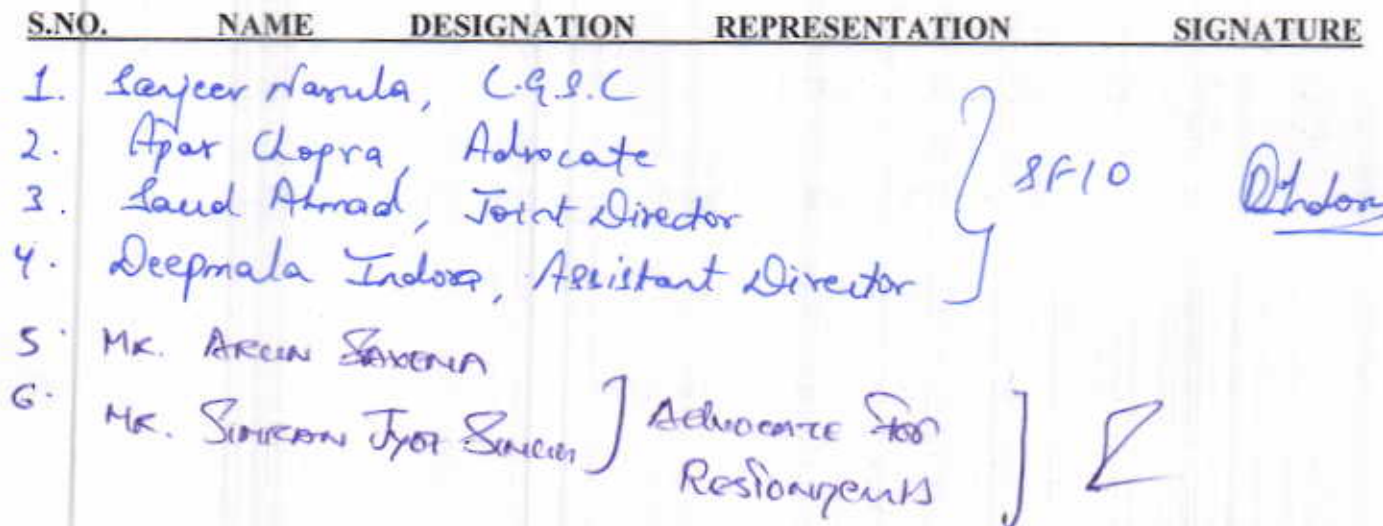 S.NO. NAME DESIGNATION REPRESENTATION SIGNATURE
1. Sanjeev Narula, C.G.S.C
2. Apar Chopra, Advocate
3. Saud Ahmad, Joint Director
4. Deepmala Indora, Assistant Director
SFIO
5. MR. ARUN SAXENA
6. MR. SIMRAN JYOT SINGH
ADVOCATE FOR
RESPONDENTS